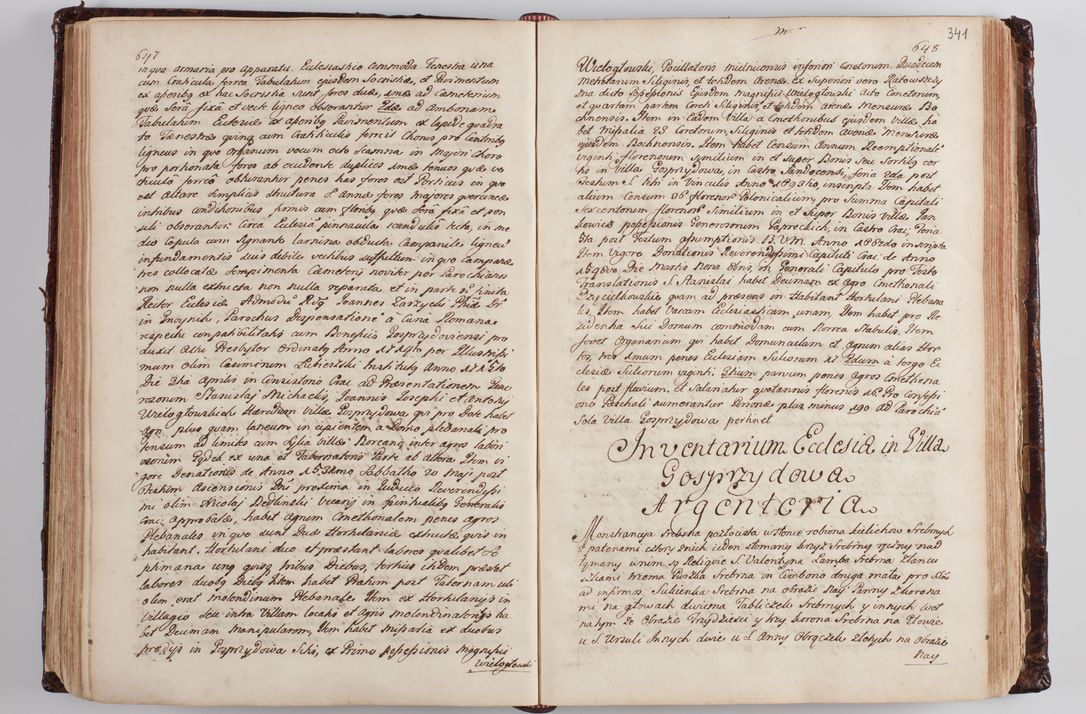 647
in qua armaria pro apparatu Ecclesiastico commoda Fenestra una
cum Craticula ferrea Tabulatum ejusdem Sacristiæ, et Pavimentum
ex asseribg ex hac Sacristia sunt fores duæ, unæ ad Cæmeterium
quæ Serâ fixâ et vecte ligneo obserantur 2dæ ad Ambonam
Tabulatum Ecclesiæ ex asseribg Pavimentum ex lapide quadra
to Fænestræ quinq cum Craticulis ferreis Chorus pro Cantoribg
ligneus in quo organum vocum octo Scamna in Majori Choro
pro portionata fores ab occidente duplices unæ tenues quæ ve
cticula ferrea obserantur penes has fores est Porticus in quo
est Altare simplicis structura S. Annæ fores majores quercinæ
in his cum
suli obserantur. Circa Ecclesia pinnacula scandulis tecta, in me
dio Copula cum Signante lamina obducta Campanile ligneū
in fundamentis suis debite in quo Campanæ
tres collocatæ Sempimenta Cæmeterij noviter per Parochianos
non nulla extructa non nulla reparata, et in parte
Rector Ecclesiæ Admodū Rndg Joannes Phiæ Dr
in Parochus Dispensatione a Cura Romana
respectu compatibilitatis cum Beneficio Gosprzydoviensi pro
duxit Actū Presbyter Ordinatg Anno per Illustrissi
mum olim Casimirum Łubieński Institutg Anno
Die 3tia Aprilis in Consistorio Crac. ad Præsentationem Gene
rosorum Stanislaj Michaelis, Joannis Josephi et Antonij
Wieloglowskich Hæredum Villæ Gosprzydowa, qui pro Dote habet
agru plus quam laneum incipientem a Domo plebanali pro
tensum ad limites cum Xlia villæ Borcana inter agros labori
osorum ex una et Tabernatoris Parte ab altera Item vi
gore Donationis de Anno Sabbatho 20 maji post
Festum Ascensionis Dni proxima in Judicio Reverendissi
mi olim Nicolaj Dedtinski Vicarij in spiritualibg Generalis
Crac: approbatæ, habet Agrum Cmethonalem penes agros
Plebanales in quo sunt Duæ Hortulaniæ extructæ quas in
habitant Hortulani duo et præstant labores qualibet se
ptimana unq quisq tribus Diebus, tertius itidem præstat
labores duobg Diebg Item habet Pratum post Tabernam ubi
olim erat molendinum Plebanale Item ex Hortulanijs in
villagio seu intra Villam locatis et Agris molendinatorijs ha
bet Decimam manipularem, Item habet missalia ex duobus
prædijs in Gosprzydowa Sitis, ex Primo possessionis Magnifici
Wieloglowski

341
645
Wieloglowski, Pocillatoris mielnicensis inferiori Coretorum
Siliginis et totidem Avenæ ex superiori vero Ratowskiz
na dicto Possessionis Ejusdem Magnifici Wieloglowski octo Coretorum,
et quartam partem Coreti Siliginis et totidem avenæ Mensuræ Bo
chnensis. Item in Eadem Villa a Cmethonibus ejusdem villæ, ha
bet missalia 23 Coretorum, Siliginis et totidem avenæ Mensuræ
ejusdem Bochnensis. Item habet Censum Annum Reemptionalē
viginti florenorum Similium in et super Bonis seu Sortibg cer
tis in Villa Gosprzydowa, in Castro Sandecensi, feria 2da post
Festum S. Petri in Vinculis Anno inscripto Item habet
alium Censum 26 florenor Polonicalium, pro Summa Capitali
Sexcentorum florenor Similium in et Super Bonis Villæ
possessionis Generosorum Paprockich, in Castro Crac, feria
6ta post Festum Assumptionis B.V.M. Anno inscripto
Item vigore Donationis Reverendissimi Capituli Crac: de Anno
Die Martis Nona Obris, in Generali Capitulo pro Festo
Translationis S. Stanislai habet Decimam ex Agro Cmethonali
Przecielkowski quam ad præsens in Habitant Hortulani Plebana
les, Item habet Vaccam Ecclesiasticam unam, Item habet pro Re
sidentia Sui Domum commodam cum Horrea Stabulis. Item
fovet Organarium qui habet Domunculam et Agrum alias Hor
tos, tres unum penes Ecclesiam Sulcorum 17 2dum a tergo Ec
clesiæ Sulcorum viginti 3tium parvum penes Agros Cmethona
les post fluvium. et Salariatur quotannis florenis 16 Pro Confessi
one Paschali numerantur Personæ plus minus 290 ad Parochiā
Sola Villa Gosprzydowa pertinet
Inventarium Ecclesiæ in Villa
Gosprzydowa
Argenteria
Monstrancya Srebrna pozłocista w Słonce robiona kielichow Srebrnych
z patenami cztery z nich ieden złomany krzyż Srebrny ręczny nad
łamany w nim są Religiæ S. Valentyna Lampa Srebrna z łancu
szkami trzema Puszka Srebrna in Ciborio druga mała pro
ad infirmos. Sukienka Srebrna na obrazie Nay Panny z koronа
mi na głowach dwiema Tabliczek Srebrnych y innych wot
na tym że Obrazie trzydziesci y trzy korona Srebrna na Głowie
u S. Urszuli Innych dwie u S Anny Obrączek złotych na obrazie
Nay